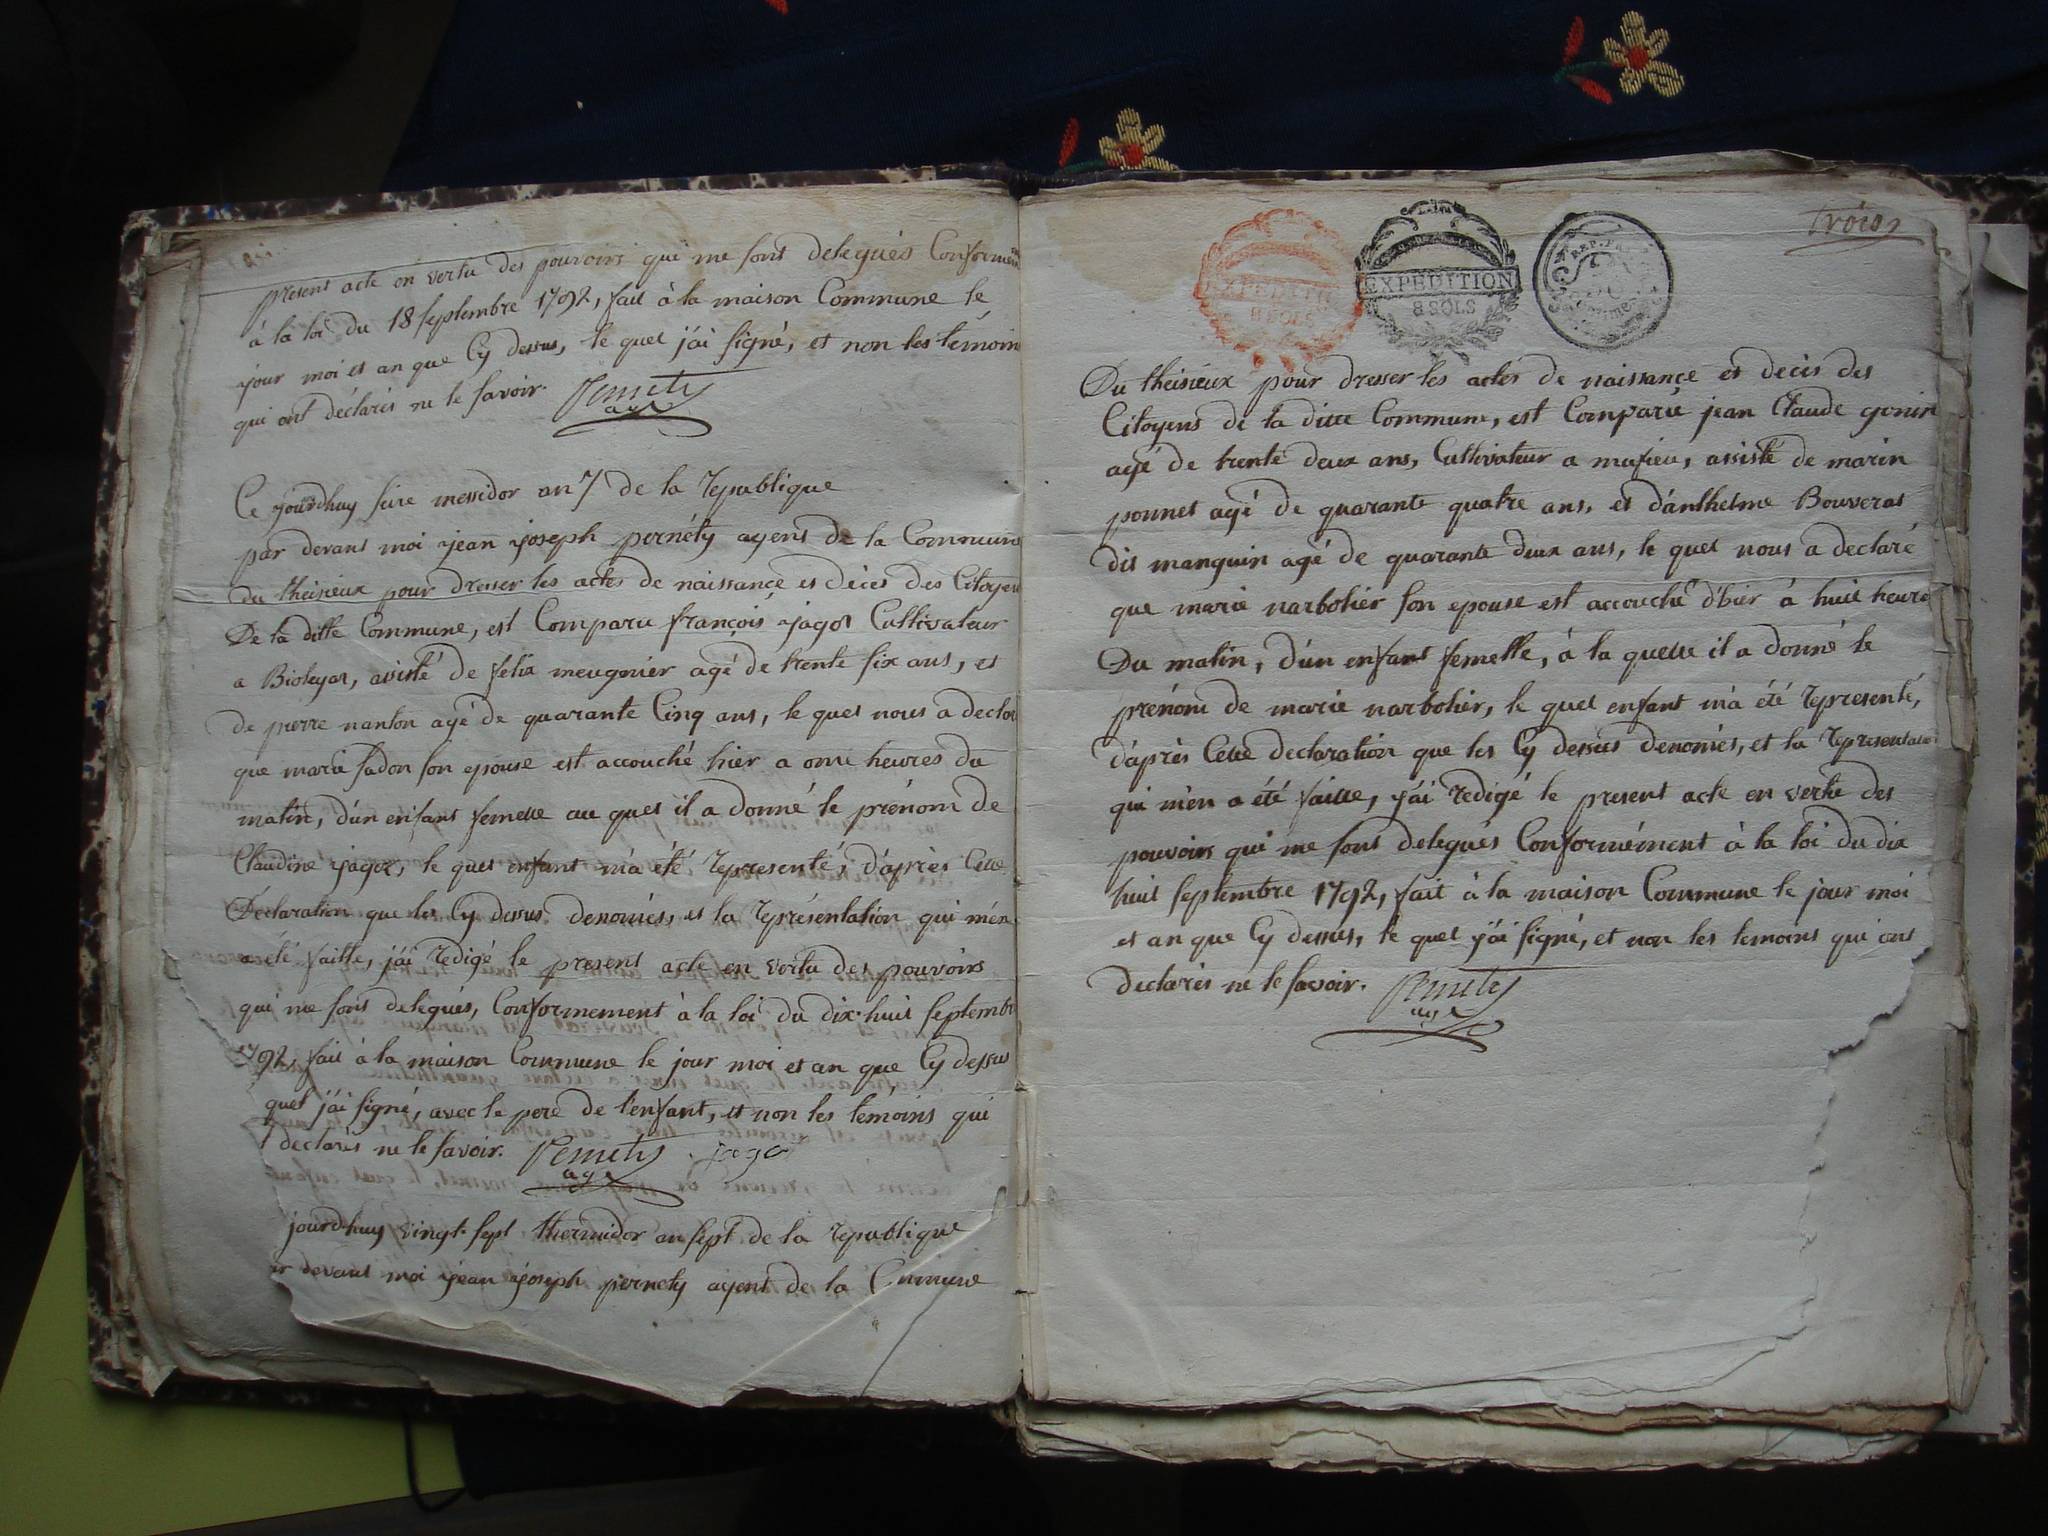 present acte en vertu des pouvoirs qui me sont delegués Conformem
à la loi du 18 septembre 1792, fait à la maison Commune le
jour moi et an que Cy dessus, le quel j'ai signé, et non les témoins
qui ont déclarés ne le savoir. Pernety
agt
Ce jourdhuy seize messidor an 7 de la republique
par devant moi jean joseph pernéty agent de la Commune
du theisieux pour dresser les actes de naissance et décès des Citoyens
De la ditte Commune, est Comparu françois jagot Cultivateur
a Bioleyar, assisté de felix meugnier agé de trente six ans, et
de pierre nanton agé de quarante Cinq ans, le quel nous a declar
que marie sadon son epouse est accouché hier a onze heures du
matin, d'un enfant femelle au quel il a donné le prénom de
Claudine jagot, le quel enfant m'a été representé, d'après Cette
Déclaration que les Cy dessus denomés, et la représentation qui m'en
a été faitte, j'ai redigé le present acte en vertu des pouvoirs
qui me sont delegués, Conformement à la loi du dix-huit septembr
1792, fait à la maison Commune le jour moi et an que Cy dessus
quel j'ai signé, avec le pere de l'enfant, et non les temoins qui
declarés ne le savoir. Pernety jagot
agt
jourdhuy vingt sept thermidor an sept de la republique
ar devant moi jean joseph pernety agent de la Commune
trois
EXPEDITION
8 SOLS
EXPEDITION
8 SOLS
REP. FRA
Du theisieux pour dresser les actes de naissance et décès des
Citoyens de la ditte Commune, est Comparu jean Claude gonin
agé de trente deux ans, Cultivateur a musieu, assisté de marin
ponnet agé de quarante quatre ans, et d'anthelme Bouveras
dit manguin agé de quarante deux ans, le quel nous a declaré
que marie narbolier son epouse est accouché d'hier à huit heure
Du matin, d'un enfant femelle, à la quelle il a donné le
prénom de marie narbolier, le quel enfant m'a été representé,
d'après Cette declaration que les Cy dessus denomés, et la representation
qui m'en a été faitte, j'ai redigé le present acte en vertu des
pouvoirs qui me sont delegués Conformément à la loi du dix
huit septembre 1792, fait à la maison Commune le jour moi
et an que Cy dessus, le quel j'ai signé, et non les temoins qui ont
declarés ne le savoir. Pernety
agt